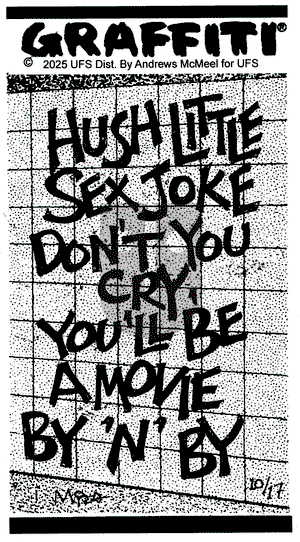 GRAFFITI®
© 2025 UFS Dist. By Andrews McMeel for UFS
HUSH LITTLE
SEX JOKE
DON'T YOU
CRY,
YOU'LL BE
A MOVIE
BY 'N' BY
10/17